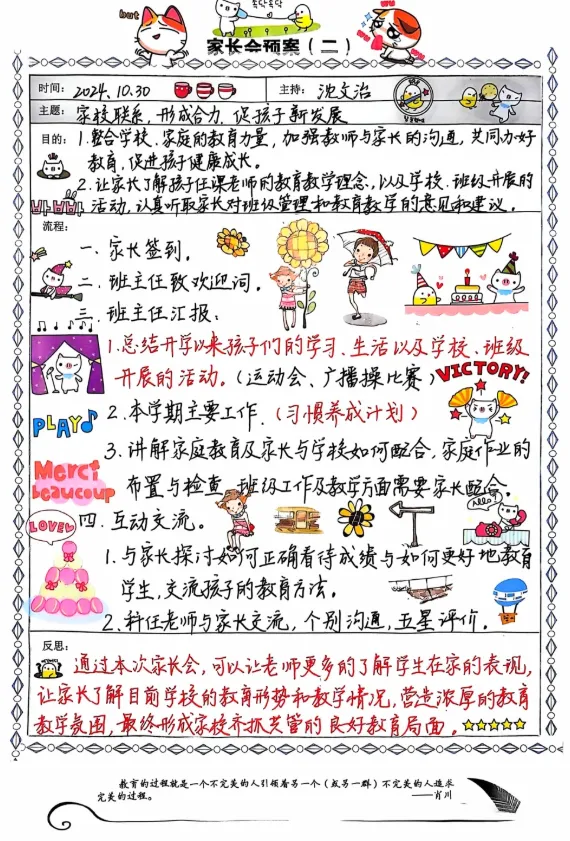 but
툭닥툭닥
家长会预案（二）
时间： 2024.10.30 主持： 沈文治
主题： 家校联系，形成合力，促孩子新发展
目的： 1.整合学校、家庭的教育力量，加强教师与家长的沟通，共同办好
教育，促进孩子健康成长。
2.让家长了解孩子任课老师的教育教学理念，以及学校、班级开展的
활동
活动，认真听取家长对班级管理和教育教学的意见和建议。
流程：
一.家长签到。
二.班主任致欢迎词。
三.班主任汇报：
1.总结开学以来孩子们的学习、生活以及学校、班级
开展的活动。（运动会、广播操比赛）
VICTORY!
PLAY
2.本学期主要工作.（习惯养成计划）
3.讲解家庭教育及家长与学校如何配合，家庭作业的
Merci
beaucoup
布置与检查，班级工作及教学方面需要家长配合
LOVEU
四.互动交流。
1.与家长探讨如何正确看待成绩与如何更好地教育
学生，交流孩子的教育方法。
2.科任老师与家长交流，个别沟通，五星评价.
反思：
通过本次家长会，可以让老师更多的了解学生在家的表现，
让家长了解目前学校的教育形势和教学情况，营造浓厚的教育
教学氛围，最终形成家校齐抓共管的良好教育局面。
教育的过程就是一个不完美的人引领着另一个（或另一群）不完美的人追求
完美的过程。 ——肖川